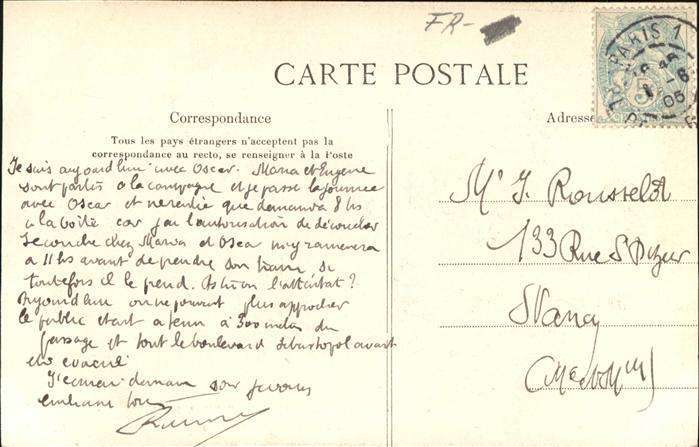 FR-
CARTE POSTALE
PARIS 1
05
Correspondance
Adresse
Tous les pays étrangers n'acceptent pas la
correspondance au recto, se renseigner à la Poste
Je suis aujourd'hui avec Oscar. Maria et Eugene
sont partis a la campagne et je passe la journee
avec Oscar et ne rentre que demain a 8 hs
a la boîte car j'ai l'autorisation de découcher
Je couche chez Maria et Oscar m'y ramenera
a 11 hs avant de prendre son train, si
toutefois il le prend. As tu vu l'attentat?
Aujourd'hui on ne pouvait plus approcher
le public etait a tenu à 300 du
passage et tout le boulevard avait
été evacué
demain soir
embrasse tous
Mr J. Rousselot
133 Rue St Dizier
Nancy